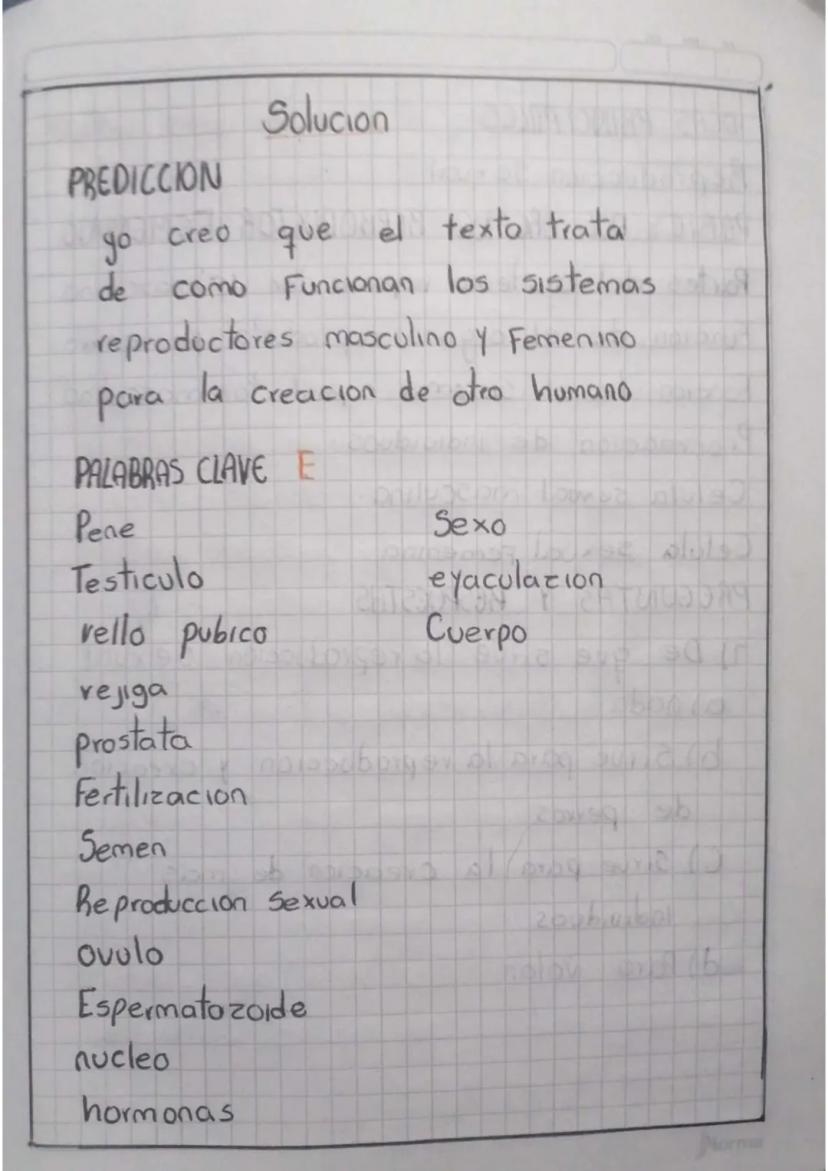 Solucion
PREDICCION
yo creo que el texto trata
de como Funcionan los sistemas
reproductores masculino y Femenino
para la creacion de otro humano
PALABRAS CLAVE E
Pene
Testiculo
vello pubico
vejiga
prostata
Fertilizacion
Semen
Reproduccion Sexual
ovulo
Espermatozoide
nucleo
hormonas
Sexo
eyaculacion
Cuerpo
Norma